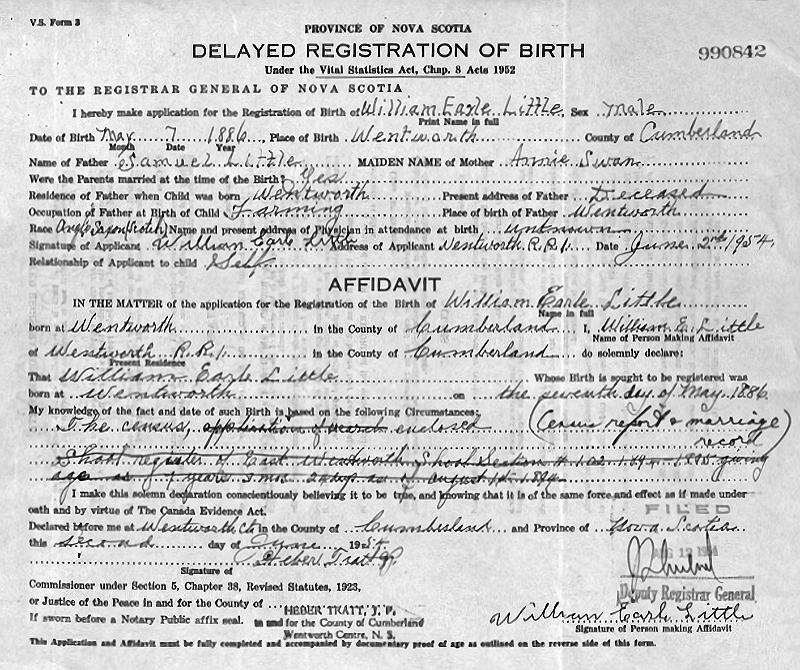 V.S. Form 3
PROVINCE OF NOVA SCOTIA
DELAYED REGISTRATION OF BIRTH
990842
Under the Vital Statistics Act, Chap. 8 Acts 1952
TO THE REGISTRAR GENERAL OF NOVA SCOTIA
I hereby make application for the Registration of Birth of William Earle Little Sex Male
Print Name in full
Date of Birth May 7 1886, Place of Birth Wentworth County of Cumberland
Month Date Year
Name of Father Samuel Little MAIDEN NAME of Mother Annie Swan
Were the Parents married at the time of the Birth? Yes
Residence of Father when Child was born Wentworth Present address of Father Deceased
Occupation of Father at Birth of Child Farming Place of birth of Father Wentworth
Race Anglo Saxon (Scotch) Name and present address of Physician in attendance at birth unknown
Signature of Applicant William Earle Little Address of Applicant Wentworth R.R.1. Date June 2nd 1954
Relationship of Applicant to child Self
AFFIDAVIT
IN THE MATTER of the application for the Registration of the Birth of William Earle Little
Name in full
born at Wentworth in the County of Cumberland I, William E. Little
Name of Person Making Affidavit
of Wentworth R.R.1. in the County of Cumberland do solemnly declare:
Present Residence
That William Earle Little Whose Birth is sought to be registered was
born at Wentworth on the seventh day of May 1886
My knowledge of the fact and date of such Birth is based on the following Circumstances:
The census, application of search enclosed (Census report & marriage
record)
School register of East Wentworth School Section # 102 1894 1895 giving
age as 8 years 3 mos. as of August 1st 1894
I make this solemn declaration conscientiously believing it to be true, and knowing that it is of the same force and effect as if made under
oath and by virtue of The Canada Evidence Act.
FILED
Declared before me at Wentworth in the County of Cumberland and Province of Nova Scotia
this second day of June 1954
AUG 12 1954
Heber Tratt J.P.
Signature of
Deputy Registrar General
Commissioner under Section 5, Chapter 38, Revised Statutes, 1923,
or Justice of the Peace in and for the County of
HEBER TRATT, J. P.
If sworn before a Notary Public affix seal.
in and for the County of Cumberland
Wentworth Centre, N. S.
William Earle Little
Signature of Person making Affidavit
This Application and Affidavit must be fully completed and accompanied by documentary proof of age as outlined on the reverse side of this form.